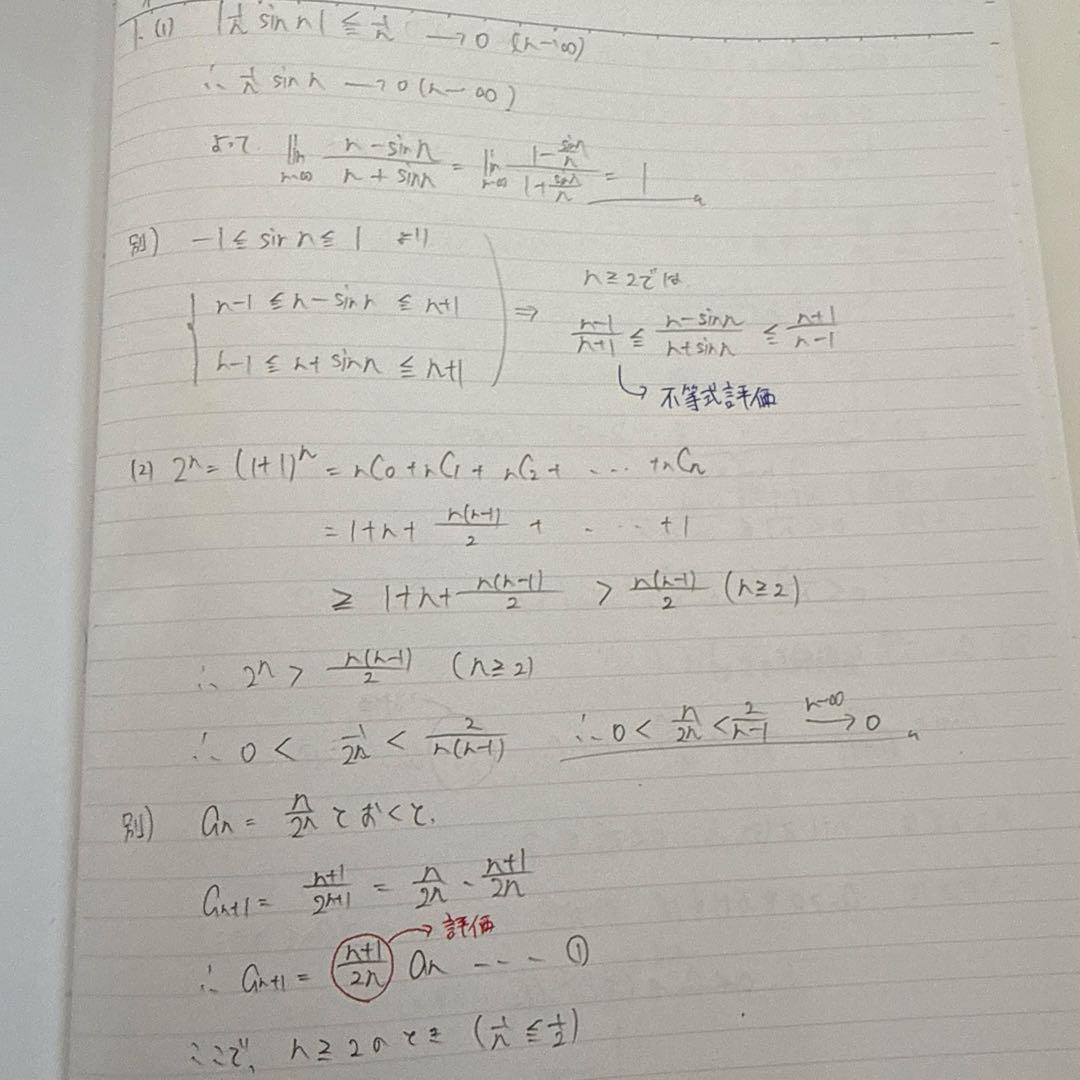 1. (1) |1/n sin n| ≦ 1/n → 0 (n→∞)
∴ 1/n sin n → 0 (n→∞)
よって lim_{n→∞} (n - sin n)/(n + sin n) = lim_{n→∞} (1 - sin n/n)/(1 + sin n/n) = 1
別) -1 ≦ sin n ≦ 1 より
{ n-1 ≦ n - sin n ≦ n+1
n-1 ≦ n + sin n ≦ n+1 ) ⇒
n ≧ 2では
(n-1)/(n+1) ≦ (n - sin n)/(n + sin n) ≦ (n+1)/(n-1)
↳ 不等式評価
(2) 2^n = (1+1)^n = nC0 + nC1 + nC2 + ・・・ + nCn
= 1 + n + n(n-1)/2 + ・・・・ + 1
≧ 1 + n + n(n-1)/2 > n(n-1)/2 (n≧2)
∴ 2^n > n(n-1)/2 (n≧2)
∴ 0 < 1/2^n < 2/(n(n-1)) ∴ 0 < n/2^n < 2/(n-1) →(n→∞) 0
別) a_n = n/2^n とおくと,
a_{n+1} = (n+1)/2^{n+1} = n/2^n ・ (n+1)/2n
∴ a_{n+1} = (n+1)/2n a_n ---- ①
→ 評価
ここで, n ≧ 2 のとき (1/n ≦ 1/2)